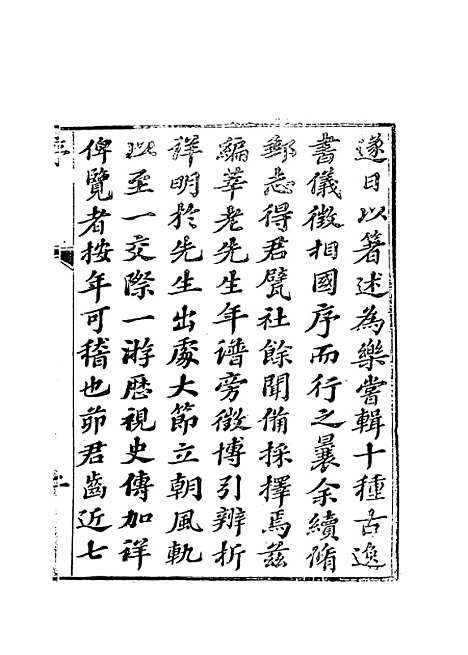 遂日以著述為樂嘗輯十種古逸
書儀徵相國序而行之曩余續脩
郵志得君甓社餘聞備採擇焉茲
編莘老先生年譜旁徵博引辨析
詳明於先生出處大節立朝風軌
以至一交際一游歷視史傳加詳
俾覽者按年可稽也茆君齒近七
序